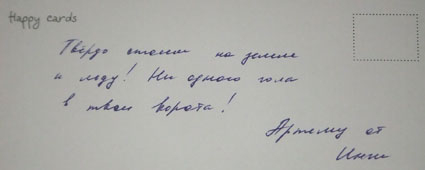 Happy cards
Твёрдо стоим на земле
и льду! Ни одного гола
в твои ворота!
Артему от
Инги